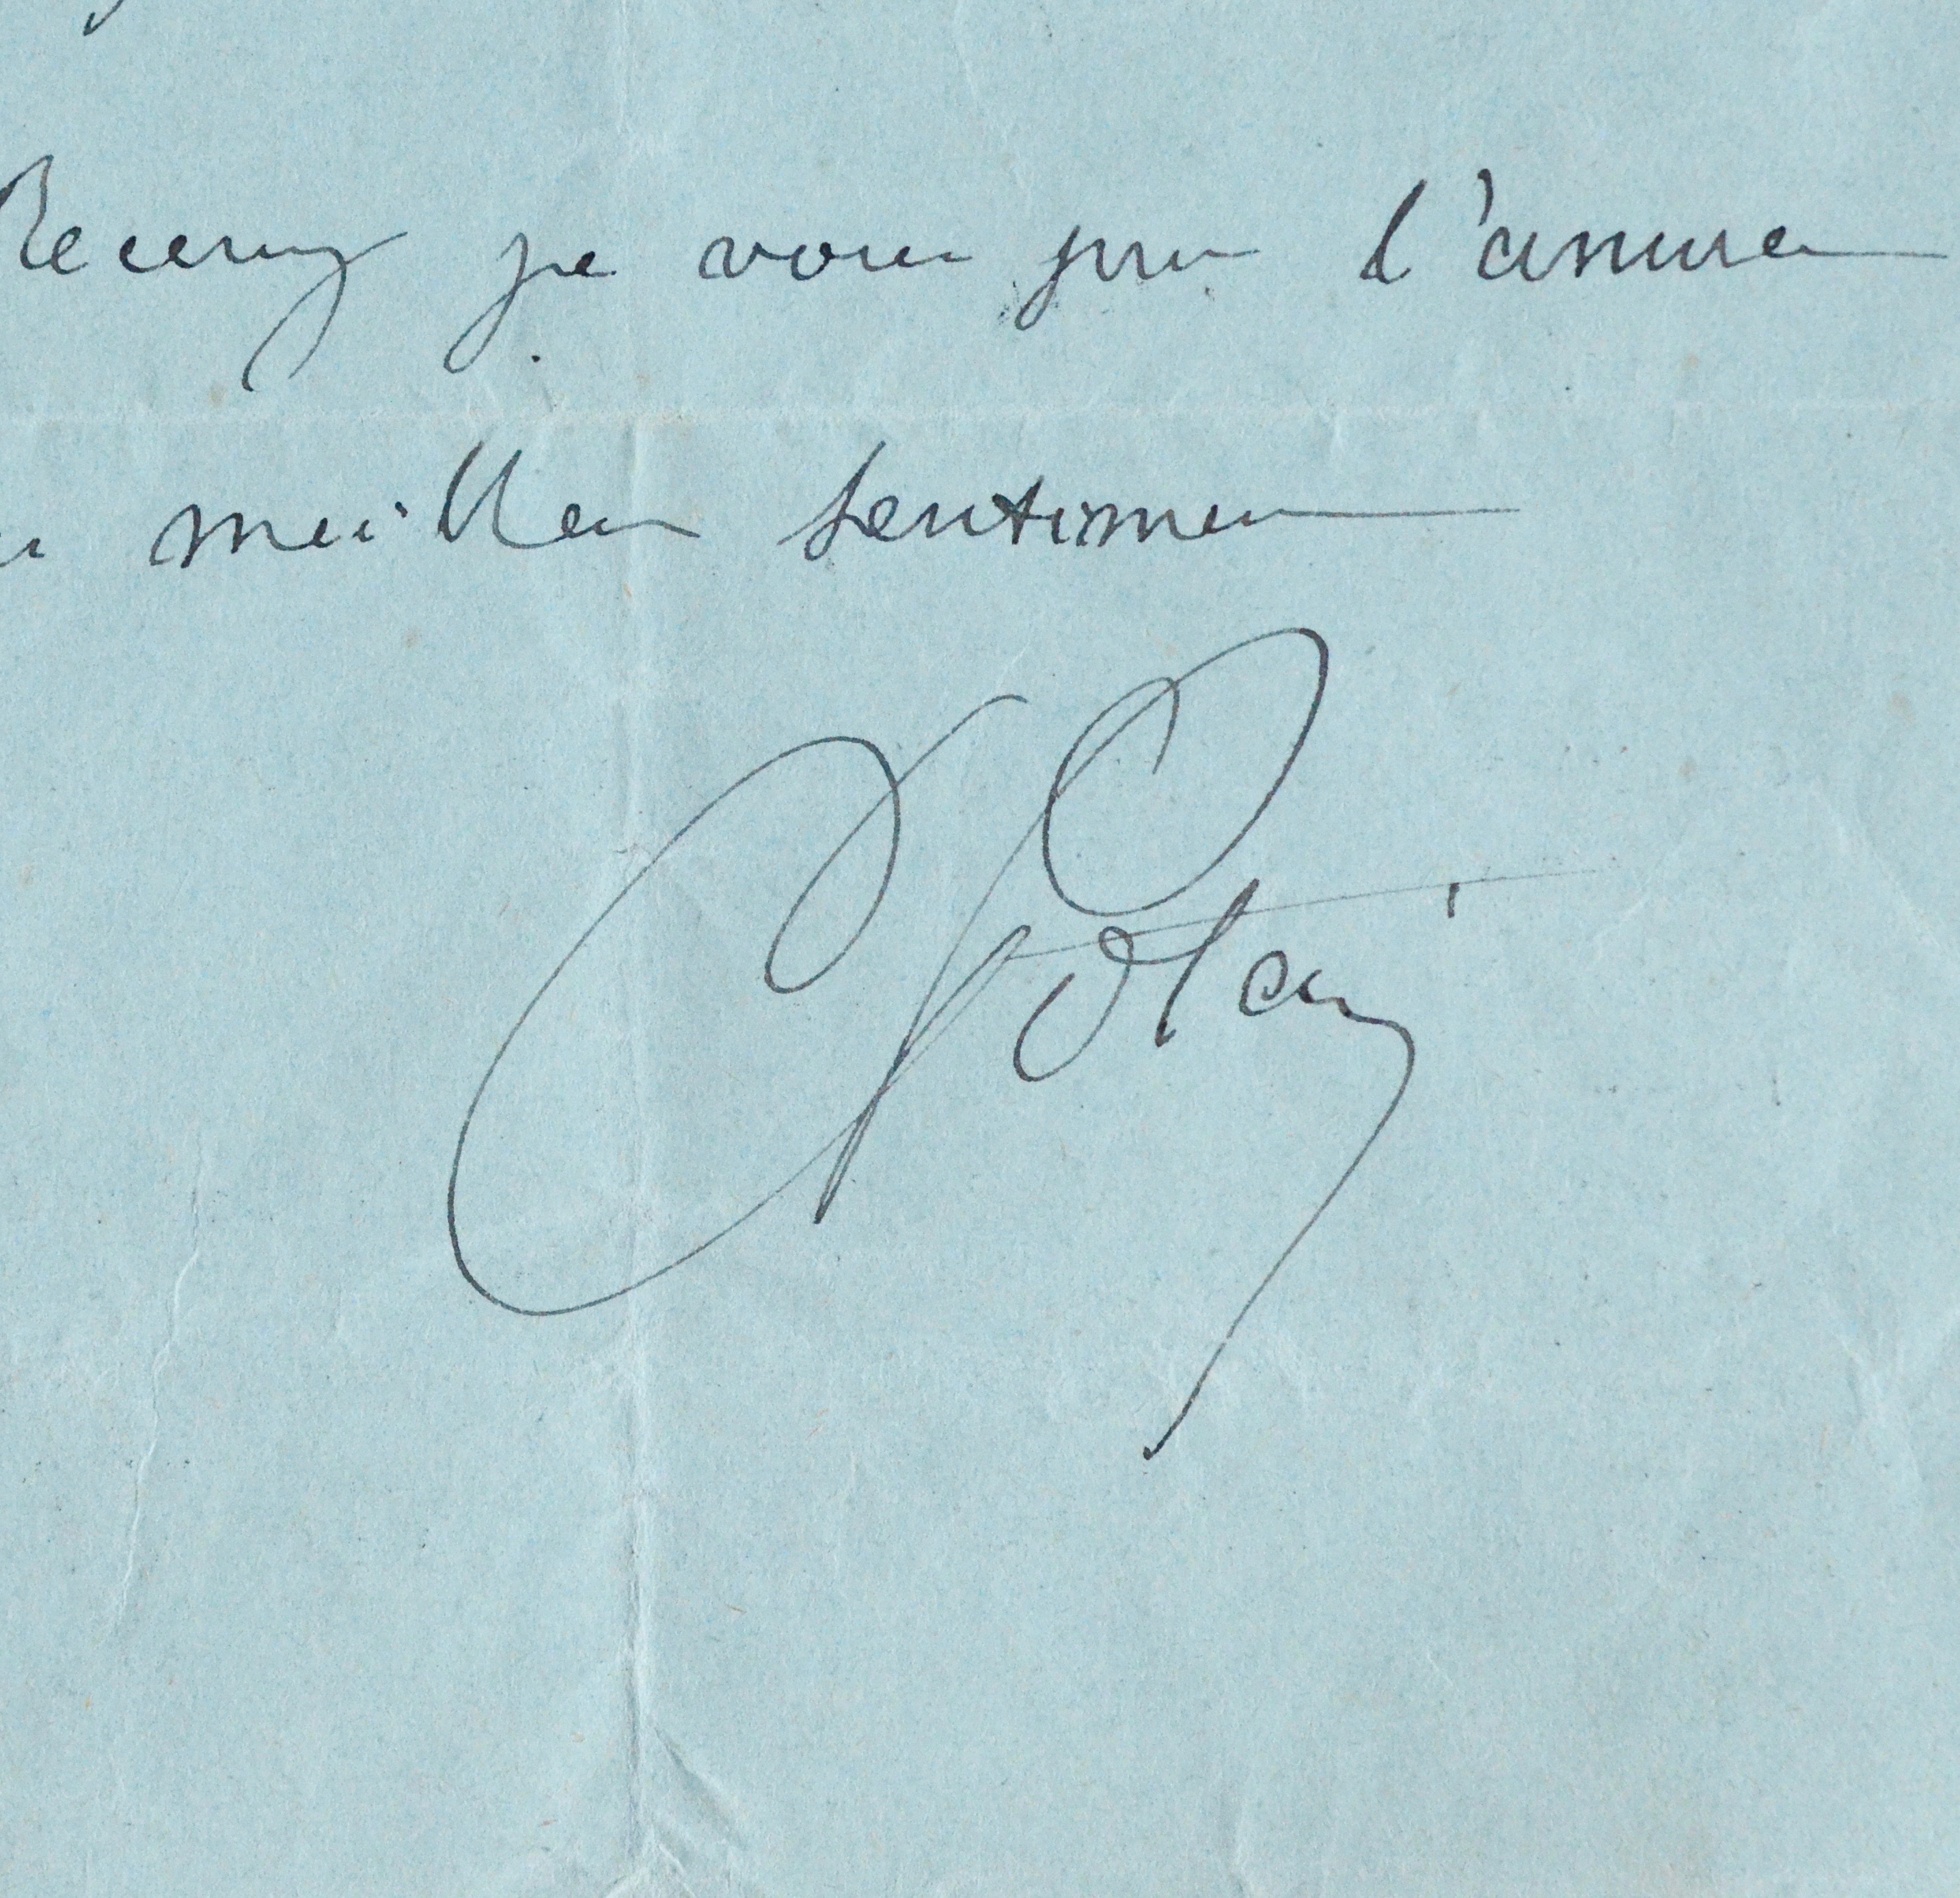 Recevez je vous prie l'assurance
meilleurs sentiments
Potain